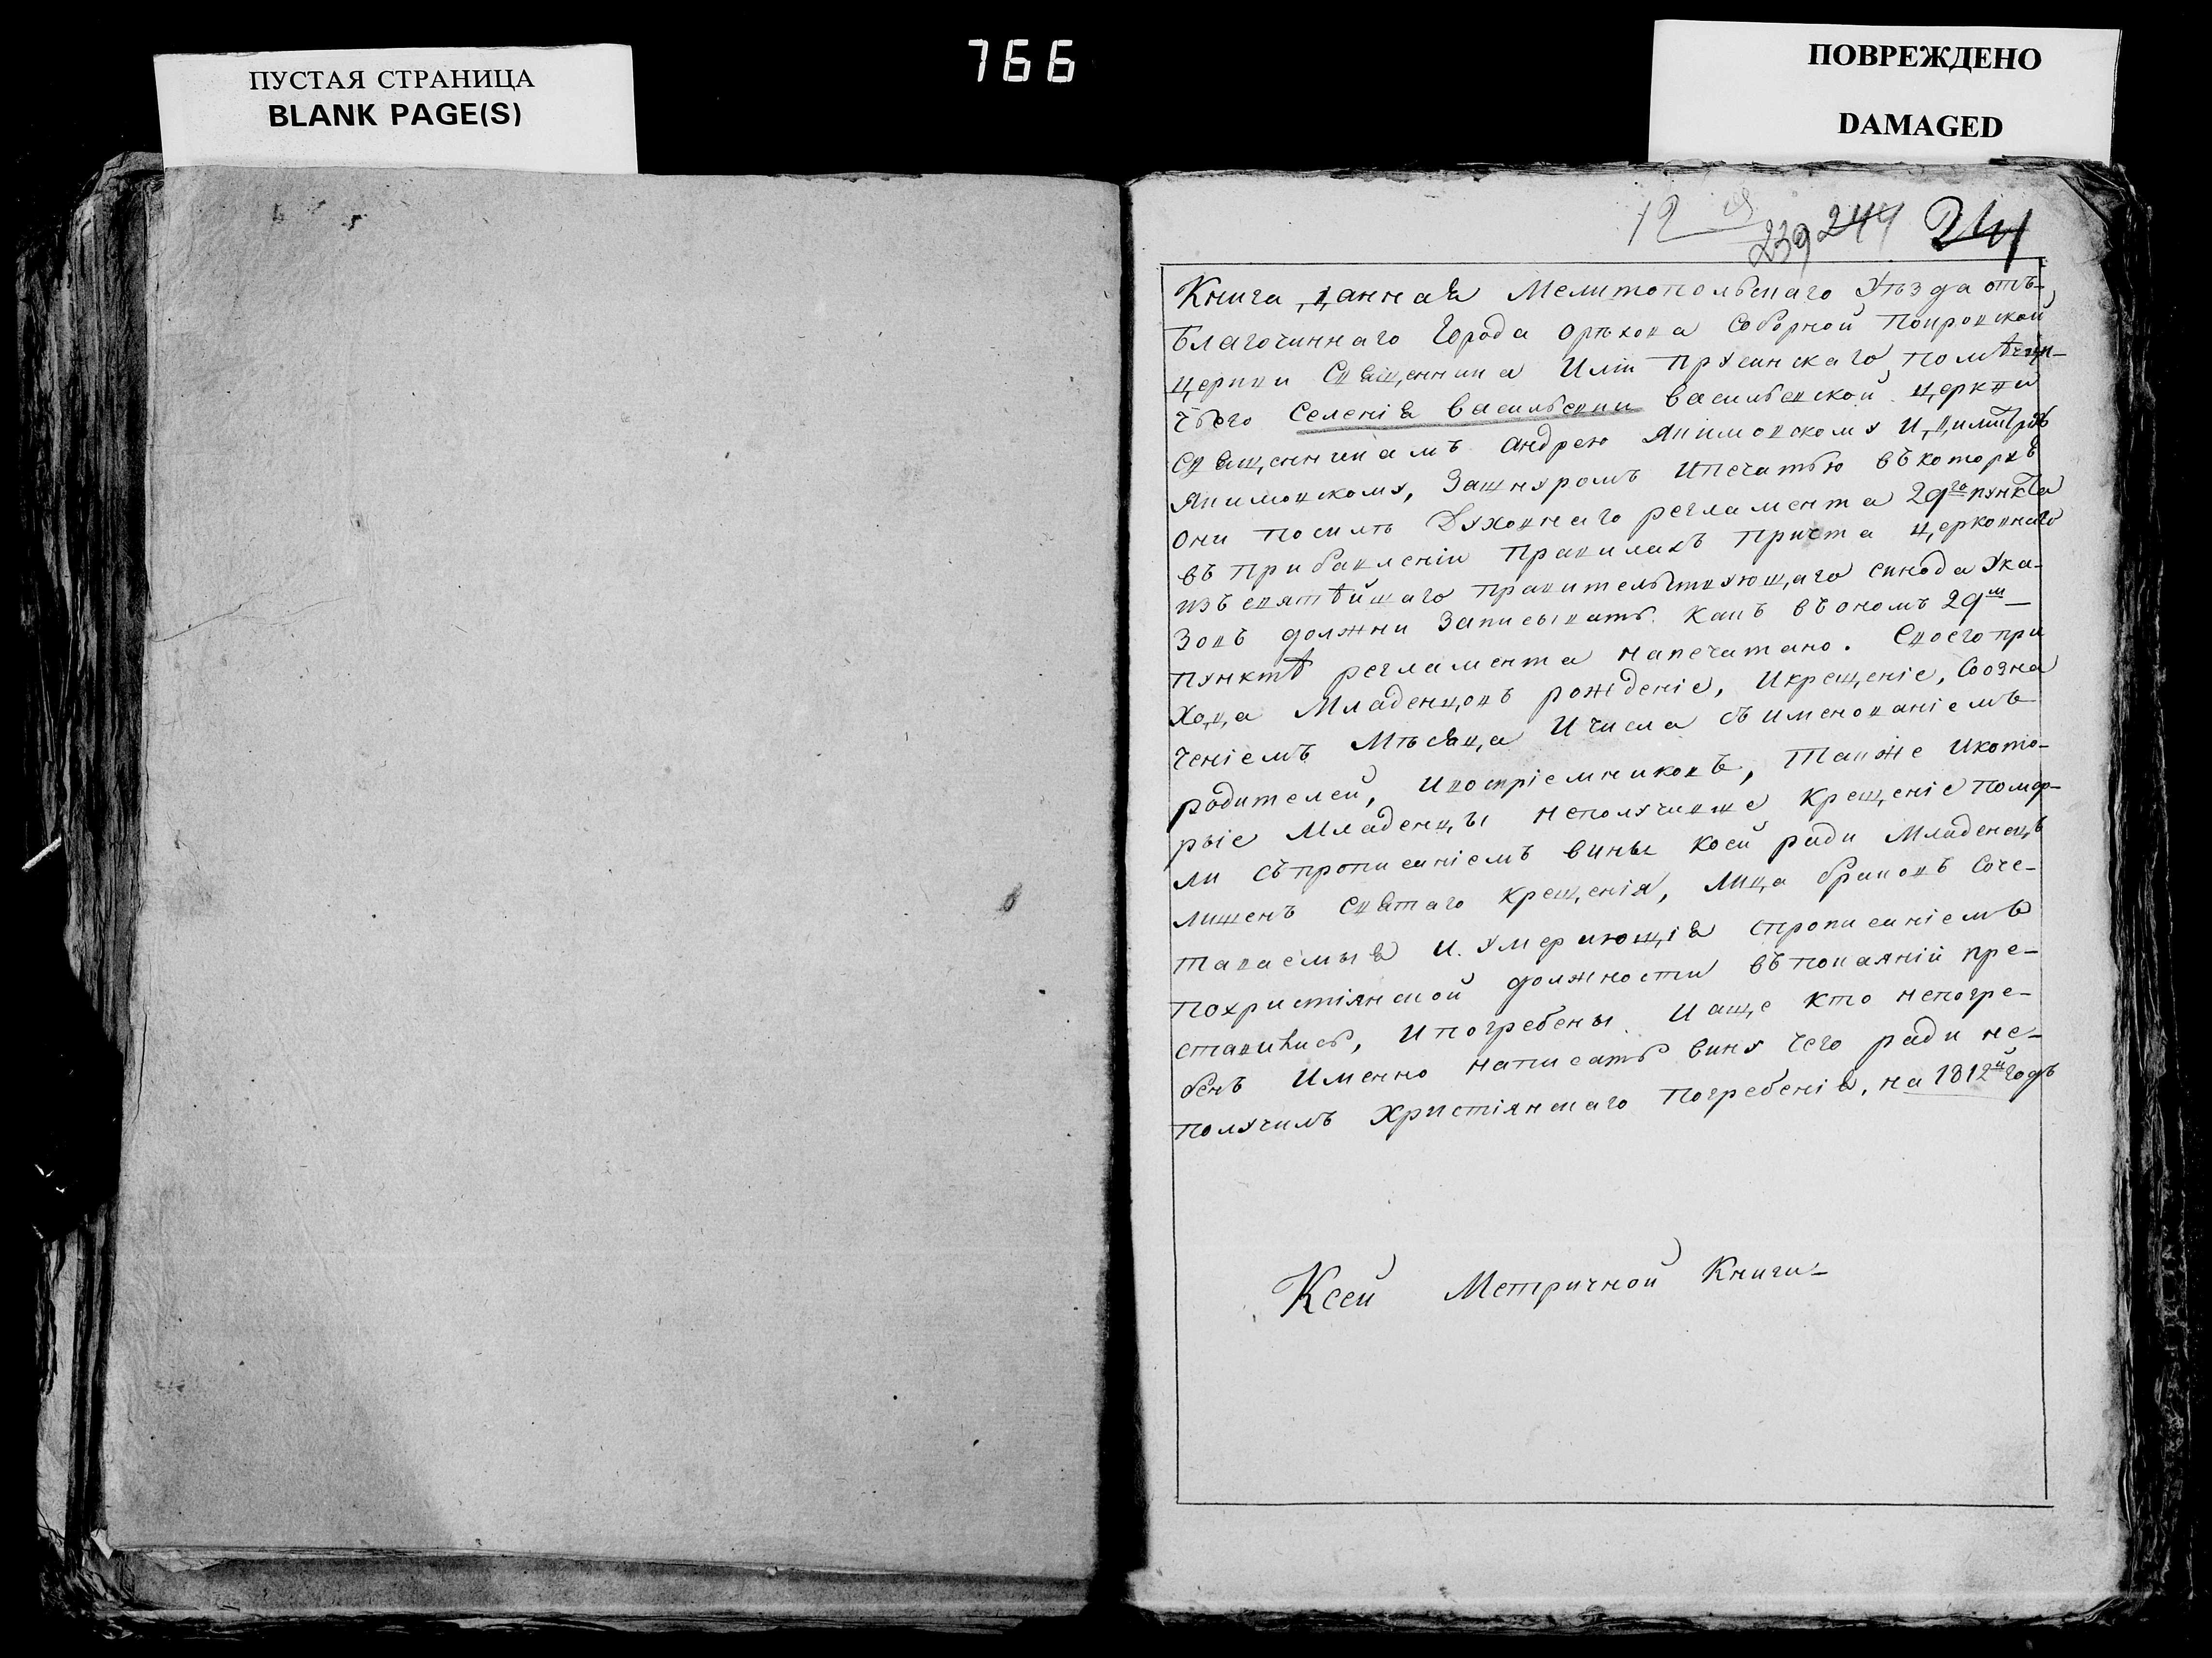 766
ПУСТАЯ СТРАНИЦА
BLANK PAGE(S)
ПОВРЕЖДЕНО
DAMAGED
12
239 244 241
Книга данная Мелитопольскаго Уѣзда отъ
благочиннаго Города орѣхова Соборной покровской
церкви Священника Иліи Прусинскаго, помѣщи-
чьего Селенія васильевки васильевской церкви
Священникамъ Андрею Якимовскому И
Якимовскому, Зашнуромъ Ипечатью въ
Они посилѣ Духовнаго регламента 29го пункта
въ прибавленіи правилахъ причта церковнаго
изъ святѣйшаго правительствующаго синода Ука-
зовъ должни Записывать. Какъ въ ономъ 29м
пунктѣ регламента напечатано. Своего при
хода Младенцовъ рожденіе, Икрещеніе, Собозна
ченіемъ Мѣсяца Ичисла съ именованіемъ
родителей, Ивоспріемниковъ, Также Икото-
рые Младенцы неполучивше крещеніе помер-
ли съпрописаніемъ вины коей ради Младенецъ
лишенъ Святаго крещенія, Лица браковъ Соче-
таваемыя И. умерающія спрописаніемъ
похристіянской должности въ покаяніи пре-
ставились, Ипогребены. И аще кто непогре-
бенъ Именно написать вину чего ради не-
получилъ Христіянскаго погребенія, на 1812й годъ
Ксей Метричной Книги